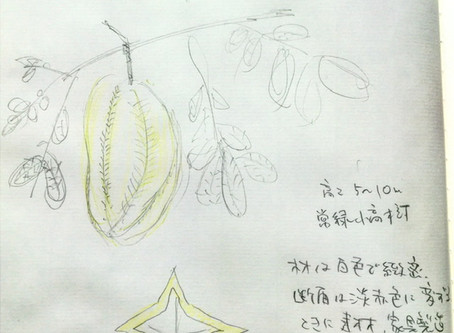 高さ 5~10m
常緑小高木
材は白色で緻密.
断面は淡赤色に変わ
ときに素材 家具製造